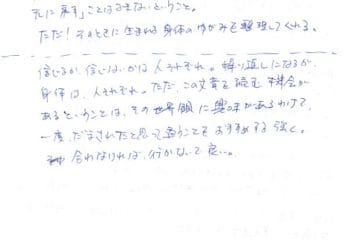 元に戻す」ことはできないということ。
ただ！そのときに生まれる身体のゆがみを整理してくれる。
信じるか、信じないかは人それぞれ。繰り返しになるが、
身体は、人それぞれ。ただ、この文章を読む機会が
あるということは、その世界観に興味があるわけで、
一度、だまされたと思って通うことをおすすめする 強く。
合わなければ、行かないで良い。